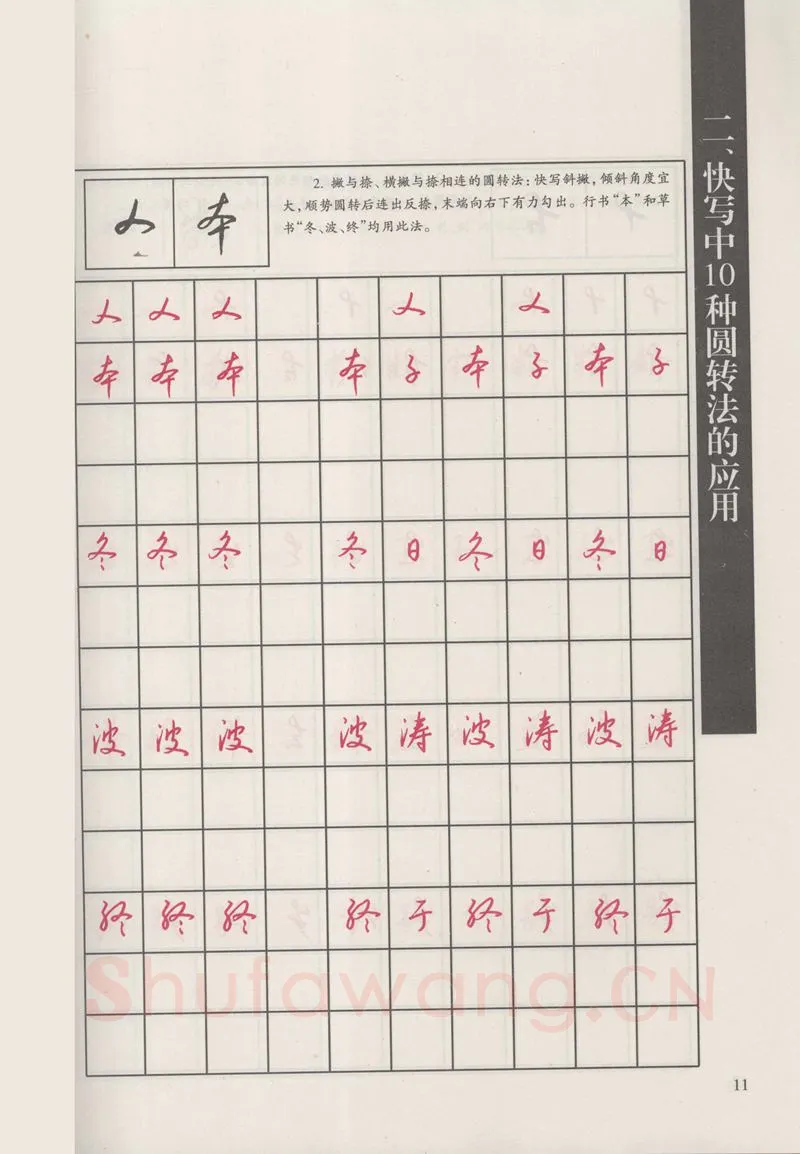 二、快写中10种圆转法的应用
人 本
2. 撇与捺、横撇与捺相连的圆转法：快写斜撇，倾斜角度宜
大，顺势圆转后连出反捺，末端向右下有力勾出。行书“本”和草
书“冬、波、终”均用此法。
人 人 人 人 人
本 本 本 本 子 本 子 本 子
冬 冬 冬 冬 日 冬 日 冬 日
波 波 波 波 涛 波 涛 波 涛
终 终 终 终 于 终 于 终 于
Shufawang.CN
11